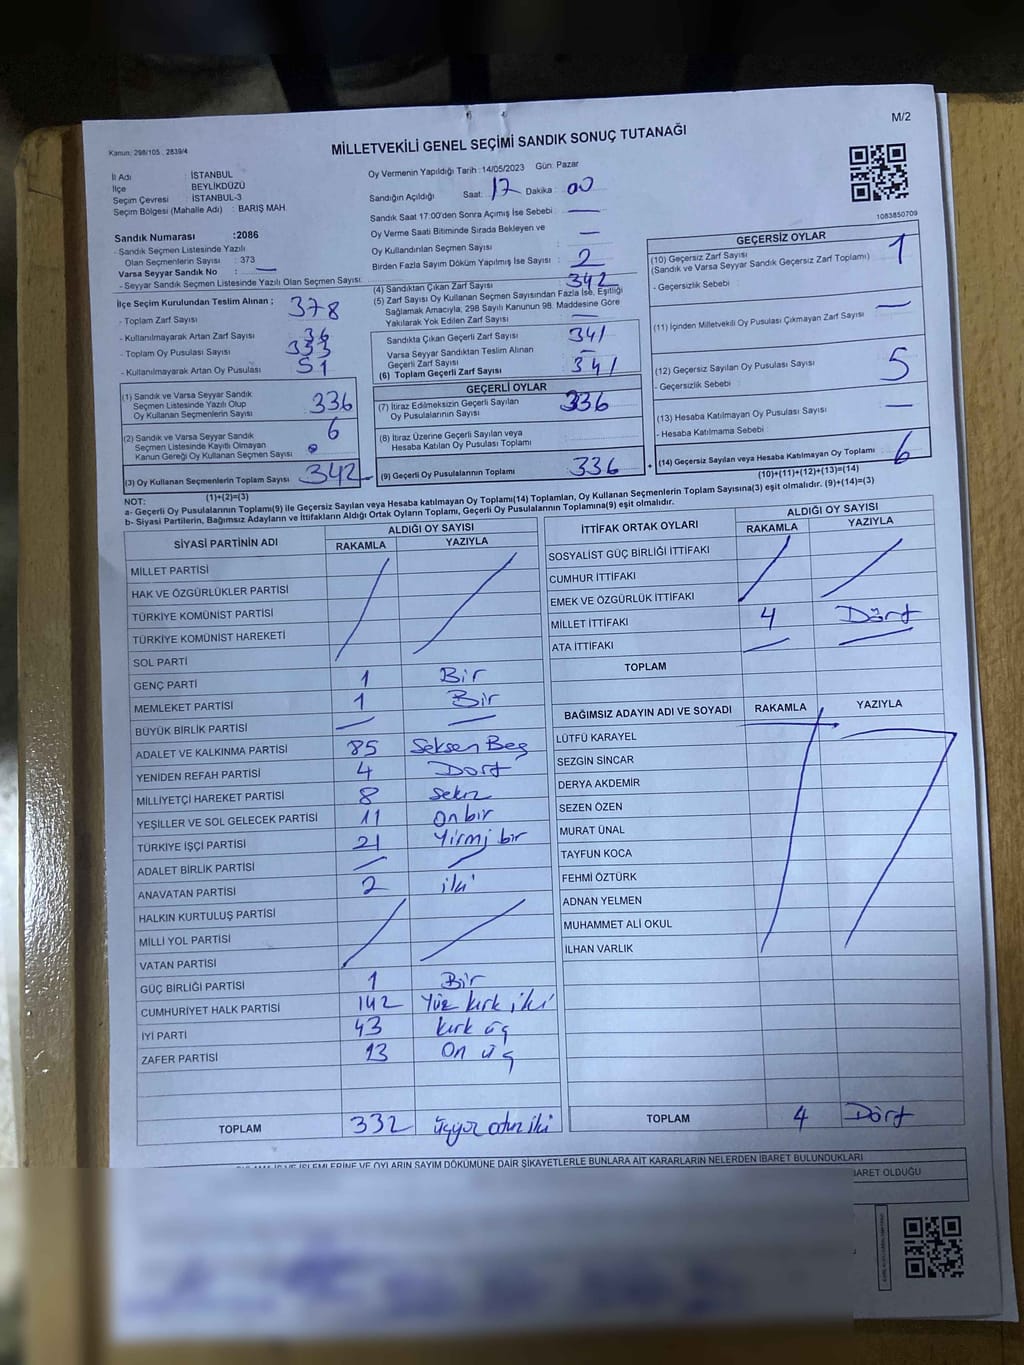 M/2
Kanun: 298/105 , 2839/4
MİLLETVEKİLİ GENEL SEÇİMİ SANDIK SONUÇ TUTANAĞI
İl Adı : İSTANBUL
İlçe BEYLİKDÜZÜ
Seçim Çevresi : İSTANBUL-3
Seçim Bölgesi (Mahalle Adı) : BARIŞ MAH
Oy Vermenin Yapıldığı Tarih :14/05/2023 Gün: Pazar
Sandığın Açıldığı Saat: 17 Dakika : 00
Sandık Saat 17:00'den Sonra Açımış İse Sebebi : —
Oy Verme Saati Bitiminde Sırada Bekleyen ve
Oy Kullandırılan Seçmen Sayısı : —
Birden Fazla Sayım Döküm Yapılmış İse Sayısı : 2
1083850709
Sandık Numarası :2086
- Sandık Seçmen Listesinde Yazılı
Olan Seçmenlerin Sayısı : 373
Varsa Seyyar Sandık No : —
- Seyyar Sandık Seçmen Listesinde Yazılı Olan Seçmen Sayısı
İlçe Seçim Kurulundan Teslim Alınan ;
- Toplam Zarf Sayısı 378
- Kullanılmayarak Artan Zarf Sayısı 36
- Toplam Oy Pusulası Sayısı
- Kullanılmayarak Artan Oy Pusulası 51
(1) Sandık ve Varsa Seyyar Sandık
Seçmen Listesinde Yazılı Olup
Oy Kullanan Seçmenlerin Sayısı 336
(2) Sandık ve Varsa Seyyar Sandık
Seçmen Listesinde Kayıtlı Olmayan
Kanun Gereği Oy Kullanan Seçmen Sayısı 6
(3) Oy Kullanan Seçmenlerin Toplam Sayısı 342
(1)+(2)=(3)
(4) Sandıktan Çıkan Zarf Sayısı : 342
(5) Zarf Sayısı Oy Kullanan Seçmen Sayısından Fazla İse, Eşitliği
Sağlamak Amacıyla, 298 Sayılı Kanunun 98. Maddesine Göre
Yakılarak Yok Edilen Zarf Sayısı : —
Sandıkta Çıkan Geçerli Zarf Sayısı 341
Varsa Seyyar Sandıktan Teslim Alınan
Geçerli Zarf Sayısı —
(6) Toplam Geçerli Zarf Sayısı 341
GEÇERLİ OYLAR
(7) İtiraz Edilmeksizin Geçerli Sayılan
Oy Pusulalarının Sayısı 336
(8) İtiraz Üzerine Geçerli Sayılan veya
Hesaba Katılan Oy Pusulası Toplamı
(9) Geçerli Oy Pusulalarının Toplamı 336
GEÇERSİZ OYLAR
(10) Geçersiz Zarf Sayısı
(Sandık ve Varsa Seyyar Sandık Geçersiz Zarf Toplamı) 1
- Geçersizlik Sebebi :
(11) İçinden Milletvekili Oy Pusulası Çıkmayan Zarf Sayısı —
(12) Geçersiz Sayılan Oy Pusulası Sayısı 5
- Geçersizlik Sebebi :
(13) Hesaba Katılmayan Oy Pusulası Sayısı —
- Hesaba Katılmama Sebebi :
+ (14) Geçersiz Sayılan veya Hesaba Katılmayan Oy Toplamı 6
(10)+(11)+(12)+(13)=(14)
NOT:
a- Geçerli Oy Pusulalarının Toplamı(9) ile Geçersiz Sayılan veya Hesaba katılmayan Oy Toplamı(14) Toplamları, Oy Kullanan Seçmenlerin Toplam Sayısına(3) eşit olmalıdır. (9)+(14)=(3)
b- Siyasi Partilerin, Bağımsız Adayların ve İttifakların Aldığı Ortak Oyların Toplamı, Geçerli Oy Pusulalarının Toplamına(9) eşit olmalıdır.
SİYASİ PARTİNİN ADI ALDIĞI OY SAYISI
RAKAMLA YAZIYLA
MİLLET PARTİSİ
HAK VE ÖZGÜRLÜKLER PARTİSİ
TÜRKİYE KOMÜNİST PARTİSİ
TÜRKİYE KOMÜNİST HAREKETİ
SOL PARTİ
GENÇ PARTİ 1 Bir
MEMLEKET PARTİSİ 1 Bir
BÜYÜK BİRLİK PARTİSİ — —
ADALET VE KALKINMA PARTİSİ 85 Seksen Beş
YENİDEN REFAH PARTİSİ 4 Dört
MİLLİYETÇİ HAREKET PARTİSİ 8 Sekiz
YEŞİLLER VE SOL GELECEK PARTİSİ 11 On bir
TÜRKİYE İŞÇİ PARTİSİ 21 Yirmi bir
ADALET BİRLİK PARTİSİ — —
ANAVATAN PARTİSİ 2 iki
HALKIN KURTULUŞ PARTİSİ
MİLLİ YOL PARTİSİ
VATAN PARTİSİ
GÜÇ BİRLİĞİ PARTİSİ 1 Bir
CUMHURİYET HALK PARTİSİ 142 Yüz kırk iki
İYİ PARTİ 43 kırk üç
ZAFER PARTİSİ 13 On üç
TOPLAM 332 üçyüz otuz iki
İTTİFAK ORTAK OYLARI ALDIĞI OY SAYISI
RAKAMLA YAZIYLA
SOSYALİST GÜÇ BİRLİĞİ İTTİFAKI
CUMHUR İTTİFAKI
EMEK VE ÖZGÜRLÜK İTTİFAKI
MİLLET İTTİFAKI 4 Dört
ATA İTTİFAKI — —
TOPLAM
BAĞIMSIZ ADAYIN ADI VE SOYADI RAKAMLA YAZIYLA
LÜTFÜ KARAYEL
SEZGİN SİNCAR
DERYA AKDEMİR
SEZEN ÖZEN
MURAT ÜNAL
TAYFUN KOCA
FEHMİ ÖZTÜRK
ADNAN YELMEN
MUHAMMET ALİ OKUL
İLHAN VARLIK
TOPLAM 4 Dört
İŞLEMLERİNE VE OYLARIN SAYIM DÖKÜMÜNE DAİR ŞİKAYETLERLE BUNLARA AİT KARARLARIN NELERDEN İBARET BULUNDUKLARI
İBARET OLDUĞU